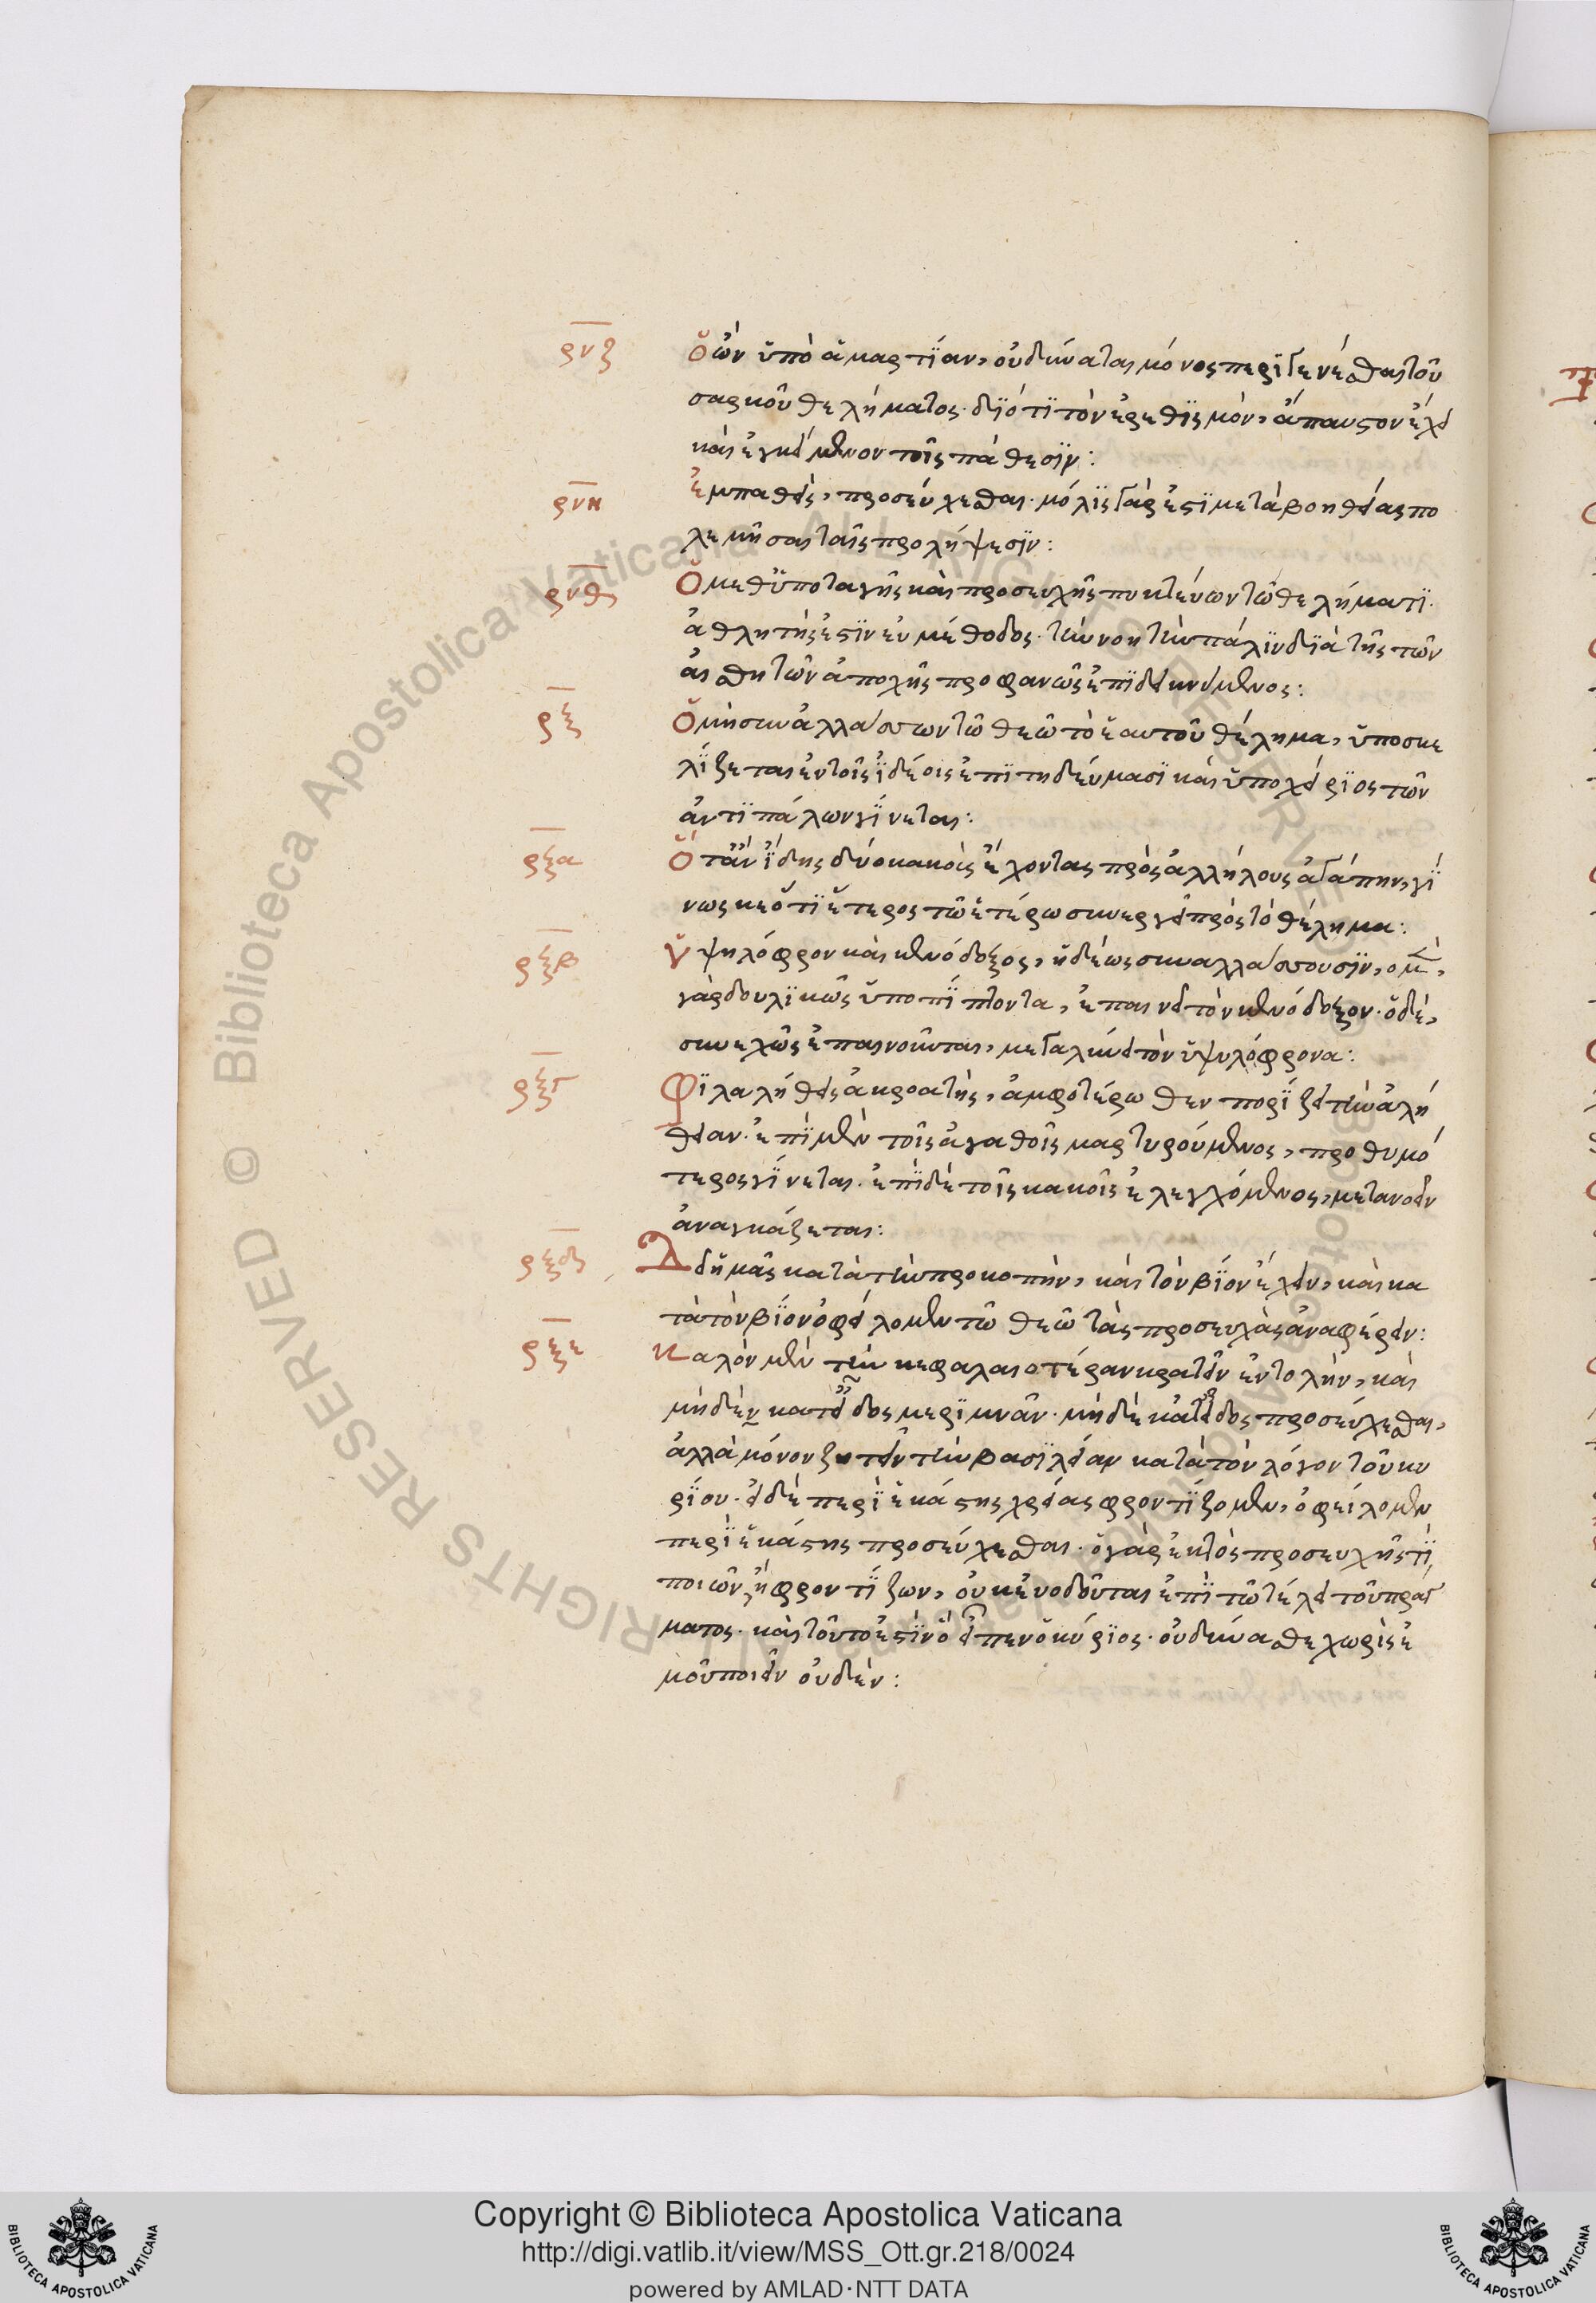 ρνζ ὁ ὢν ὑπὸ ἁμαρτίαν, οὐ δύναται μόνος περιγενέσθαι τοῦ
σαρκοῦ θελήματος· διότι τὸν ἐρεθισμὸν, ἄπαυστον ἔχει
καὶ ἐγκείμενον τοῖς πάθεσιν:
ρνη ἐμπαθεῖς, προσεύχεσθαι· μόλις γάρ ἐστι μετὰ βοηθείας πο
λεμῆσαι ταῖς προλήψεσιν:
ρνθ Ὁ μεθ ὑποταγῆς καὶ προσευχῆς πυκτεύων τῶ θελήματι·
ἀθλητής ἐστιν εὐμέθοδος· τὴν νοητὴν πάλιν διὰ τῆς τῶν
αἰσθητῶν ἀποχῆς προφανῶς ἐπιδεικνύμενος:
ρξ Ὁ μὴ συναλλάσσων τῶ θεῶ τὸ ἑαυτοῦ θέλημα, ὑποσκε
λίζεται ἐν τοῖς ἰδίοις ἐπιτηδεύμασι καὶ ὑποχείριος τῶν
ἀντιπάλων γίνεται:
ρξα Ὅταν ἴδης δύο κακοὺς ἔχοντας πρὸς ἀλλήλους ἀγάπην, γί
νωσκε ὅτι ἕτερος τῶ ἑτέρω συνεργεῖ πρὸς τὸ θέλημα:
ρξβ Ὑψηλόφρον καὶ κενόδοξος, ἡδέως συναλλάσσουσιν, ὁ μὲν,
γὰρ δουλικῶς ὑποπίπτοντα, ἐπαινεῖ τὸν κενόδοξον· ὁ δὲ,
συνεχῶς ἐπαινοῦνται, μεγαλύνει τὸν ὑψυλόφρονα:
ρξγ Φιλαλήθεις ἀκροατὴς, ἀμφοτέρωθεν πορίζει τὴν ἀλή
θειαν· ἐπὶ μὲν τοῖς ἀγαθοῖς μαρτυρούμενος, προθυμό
τερος γίνεται· ἐπὶ δὲ τοῖς κακοῖς ἐλεγχόμενος, μετανοεῖν
ἀναγκάζεται:
ρξδ Δεῖ ἡμᾶς κατὰ τὴν προκοπὴν, καὶ τὸν βίον ἔχειν, καὶ κα
τὰ τὸν βίον ὀφείλομεν τῶ θεῶ τὰς προσευχὰς ἀναφέρειν:
ρξε Καλὸν μὲν τὴν κεφαλαιοτέραν κρατεῖν ἐντολὴν, καὶ
μηδὲν κατ εἶδος μεριμνᾶν· μηδὲ κατ εἶδος προσεύχεσθαι,
ἀλλὰ μόνον ζητεῖν τὴν βασιλείαν κατὰ τὸν λόγον τοῦ κυ
ρίου· εἰ δὲ περὶ ἑκάστης χρείας φροντίζομεν, ὀφείλομεν
περὶ ἑκάστης προσεύχεσθαι· ὁ γὰρ ἐκτὸς προσευχῆς τί
ποιῶν, ἢ φροντίζων, οὐκ ἐνοδοῦται ἐπὶ τῶ τέλει τοῦ πράγ
ματος· καὶ τοῦτο ἐστὶν ὃ εἶπεν ὁ κύριος· οὐ δύνασθε χωρὶς ἐ
μοῦ ποιεῖν οὐδέν:
Biblioteca Apostolica Vaticana ALL RIGHTS RESERVED ©
Copyright © Biblioteca Apostolica Vaticana
http://digi.vatlib.it/view/MSS_Ott.gr.218/0024
powered by AMLAD·NTT DATA
BIBLIOTECA APOSTOLICA VATICANA
BIBLIOTECA APOSTOLICA VATICANA